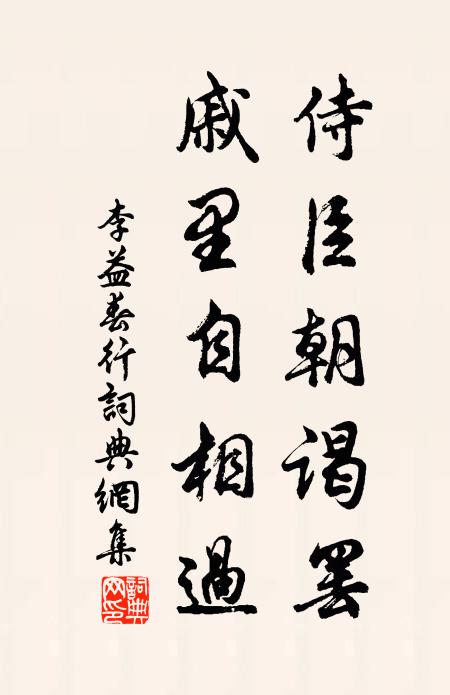 侍臣朝謁罷
戚里自相過
李益春行詞典網集
詞典网印